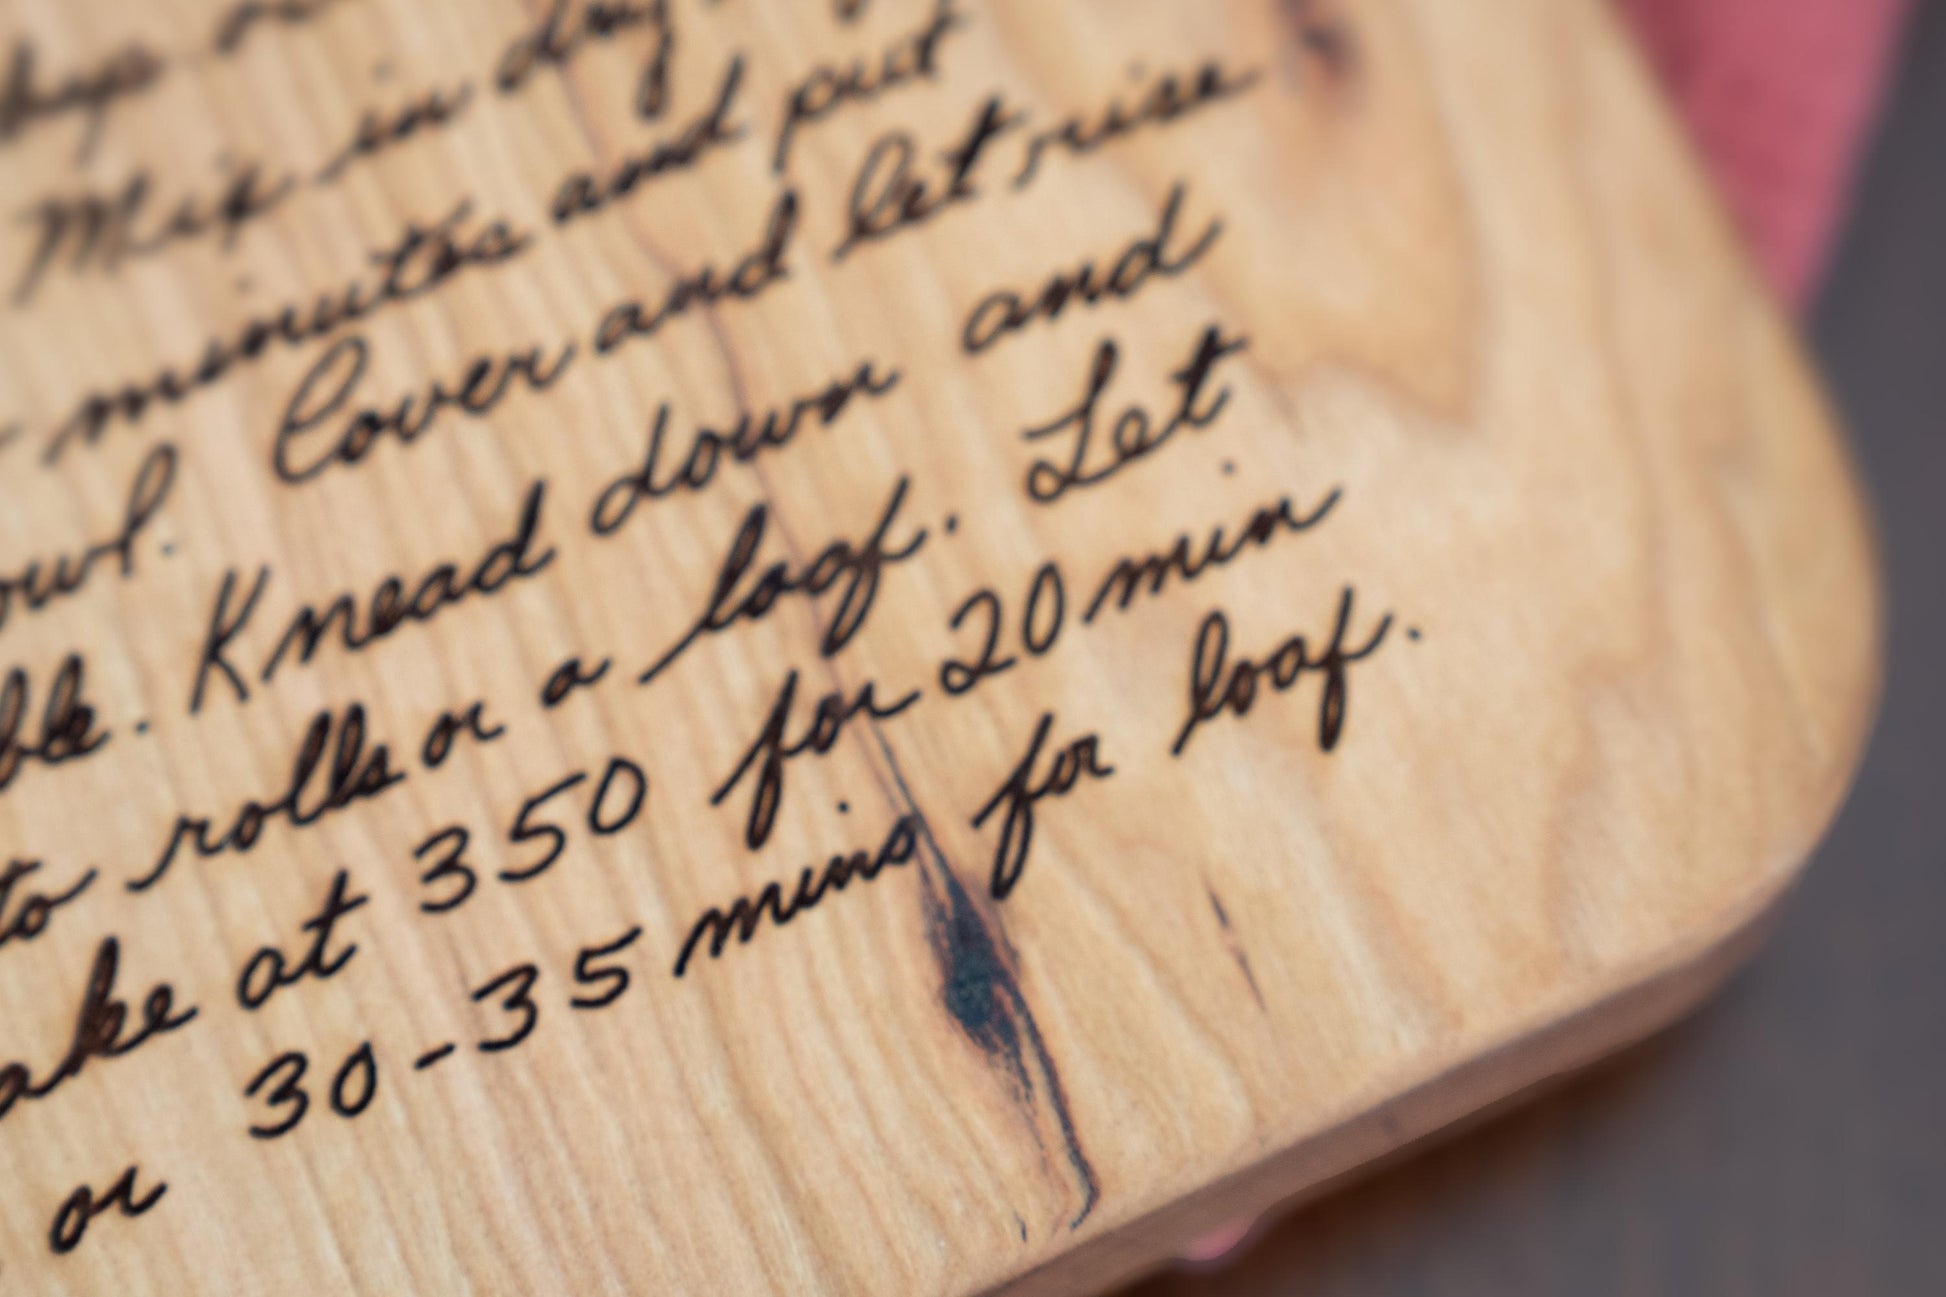 Mix in dry
minutes and put
owl. Cover and let rise
ble. Knead down and
to rolls or a loaf. Let
ake at 350 for 20 min
or 30-35 mins for loaf.